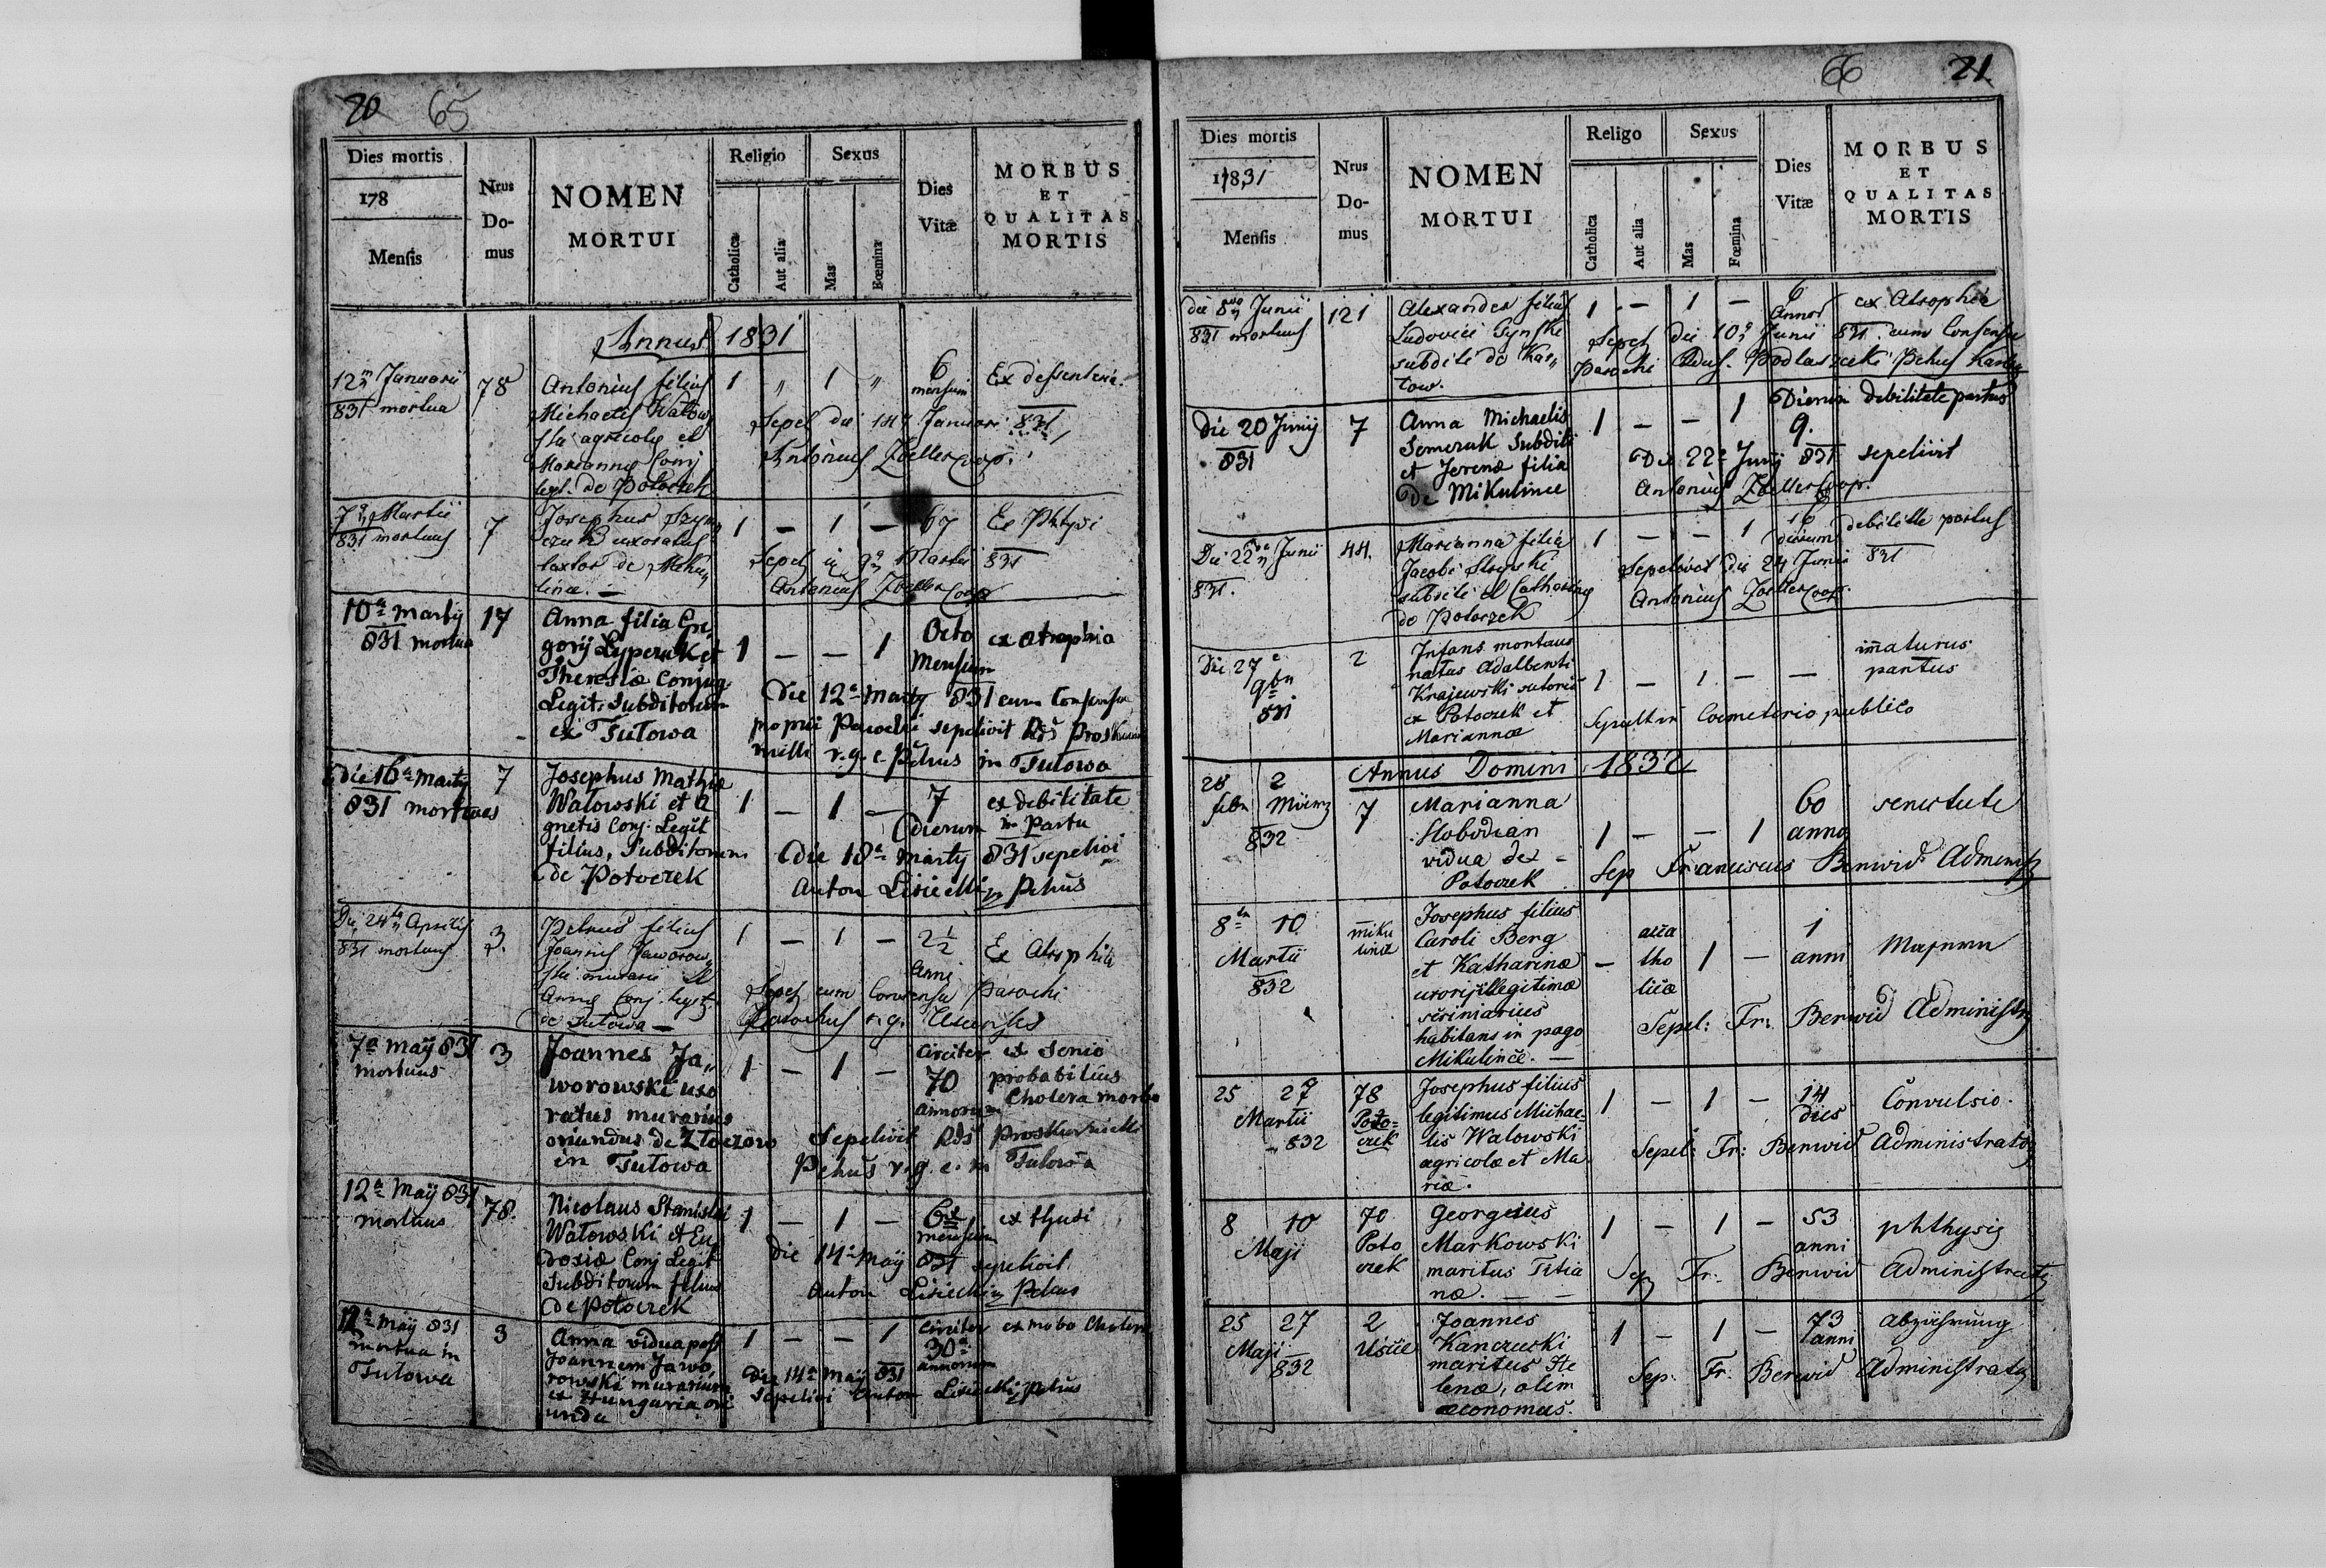 20 65
Dies mortis
178
Mensis
Nrus
Do-
mus
NOMEN
MORTUI
Religio
Catholica
Aut alia
Sexus
Mas
Fœmina
Dies
Vitæ
MORBUS
ET
QUALITAS
MORTIS
Annus 1831
12 Januarii
831 mortua
78
Antonius filius
Michaelis Watow
ski agricolę et
Mariannę Conj
legt. de Potoczek
1 " 1 "
6
mensium
Ex dessenteria
Sepel die 14 Januari 831
Antonius Zoeller Coop.
7 Martii
831 mortuus
7
Josephus
uxoratus
de Miku
lince.
1 — 1 —
67
Ex Phtysi
Sepel 9 Martii 831
Antonius Zoeller Coop
10a Marty
831 mortua
17
Anna filia Gre
gorij Lyperuk et
Theresiæ Conjug
Legit. Subditorum
ex Tutowa
1 — — 1
Octo
Mensium
ex atrophia
die 12a Marty 831 cum Consensu
proprii Parochi sepelivit Rds Pros
r. g. c. Pchus in Tutowa
die 16a Marty
831 mortuus
7
Josephus Mathiæ
Watowski et A
gnetis Conj. Legit
filius, Subditorum
de Potoczek
1 — 1 —
7
dierum
ex debilitate
in Partu
die 18a Marty 831 sepelivi
Anton Lisiecki Pchus
Die 24 Aprilis
831 mortuus
3.
Petrus filius
Joannis Jaworow
ski murarii et
Annę Conj. legt.
de Tutowa —
1 — 1 —
2 1/2
Anni
Ex Atrophia
Sepel cum Consensu Parochi
Parochus r. g.
7a Maij 831
mortuus
3
Joannes Ja„
worowski uxo
ratus murarius
oriundus de Złoczow
in Tutowa
1 — 1 —
circiter
70
annorum
ex senio
probabilius
Cholera morbo
Sepelivit Rds Proskurnicki
Pchus r. g. c. in Tutowa
12a Maij 831
mortuus
78.
Nicolaus Stanislai
Watowski et Eu
dosiæ Conj Legit
Subditorum filius
de Potoczek
1 — 1 —
6
mensium
ex thysi
die 14a Maij 831 sepelivit
Anton Lisiecki Pchus
12a Maij 831
mortua in
Tutowa
3
Anna vidua post
Joannem Jawo
rowski murarium
ex Hungaria ori
unda
1 — — 1
circiter
30
annorum
ex mobo Cholera
die 14a Maij 831
sepelivi Anton Lisiecki Pchus
66 21
Dies mortis
17831
Mensis
Nrus
Do-
mus
NOMEN
MORTUI
Religo
Catholica
Aut alia
Sexus
Mas
Fœmina
Dies
Vitæ
MORBUS
ET
QUALITAS
MORTIS
die 8 Junii
831 mortuus
121
Alexander filius
Ludovici Gynski
subditi de Kar„
low.
1 — 1 —
6
Annor
ex Atrophia
Sepel die 10 Junii 831 cum Consensu
Parochi Podlaszecki Pchus
die 20 Junij
831
7
Anna Michaelis
Semeruk Subditi
et Jerenæ filia
de Mikulince
1 — — 1
Dierum
9.
debilitate partus
Die 22a Junij 831 sepelivit
Antonius Zoeller Coop.
Die 22 Junii
831.
44.
Marianna filia
Jacobi
subditi et Catharinę
de Potoczek
1 — — 1
16
dierum
debilitte partus
Sepelivit die 24 Junii 831
Antonius Zoeller Coop.
Die 27
9bri
831
2
Infans mortuus
natus Adalberti
Krajewski sutoris
ex Potoczek et
Mariannæ
1 — 1 — —
imaturus
partus
Sepult in Coemeterio publico
Annus Domini 1832
28 2
febr März
832
7
Marianna
Slobodian
vidua de
Potoczek
1 — — 1
60
anno
senectute
Sep Franciscus Berwid Administ
8 10
Martii
832
miku
lince
Josephus filius
Caroli Berg
et Katharinæ
uxoris legitimæ
scriniarius
habitans in pago
Mikulince. —
—
aca
tho
licæ
1 —
1
anni
Sepel: Fr: Berwid Administr
25 27
Martii
832
78
Poto=
czek
Josephus filius
legitimus Michae=
lis Walowski
agricolæ et Ma
riæ.
1 — 1 —
14
dies
Convulsio.
Sepel: Fr: Berwid Administrator
8 10
Maji
70
Poto
czek
Georgius
Markowski
maritus Titia
næ. — —
1 — 1 —
53
anni
phthysis
Sep Fr: Berwid Administrator
25 27
Maji
832
2
Uście
Joannes
Kanczuski
maritus He
lenæ, olim
æconomus.
1 — 1 —
73
anni
Abzührung
Sep: Fr: Berwid Administrator